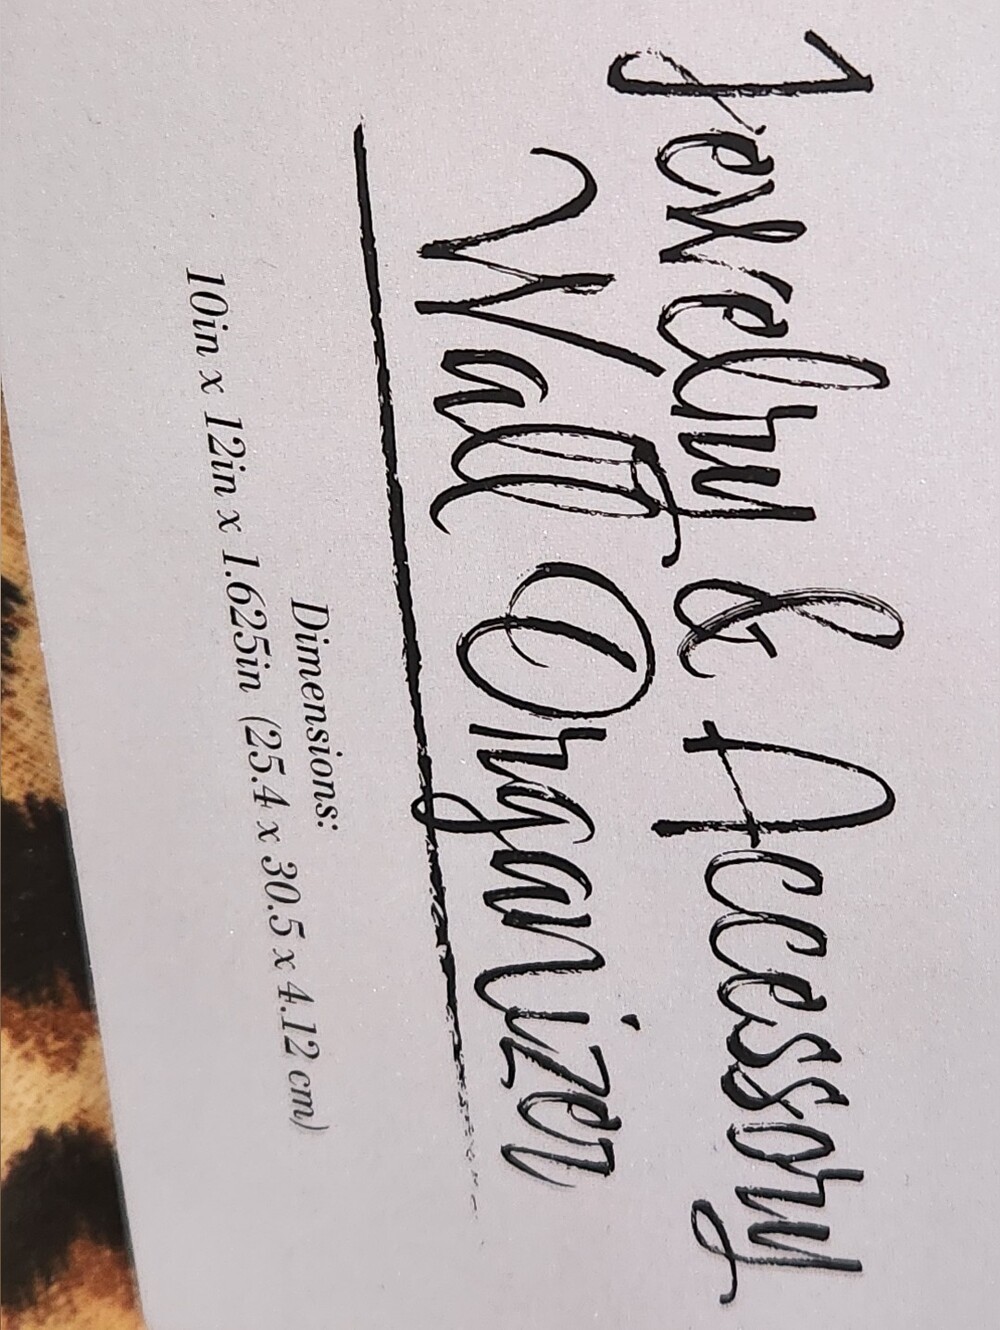 Jewelry & Accessory
Wall Organizer
Dimensions:
10in x 12in x 1.625in (25.4 x 30.5 x 4.12 cm)